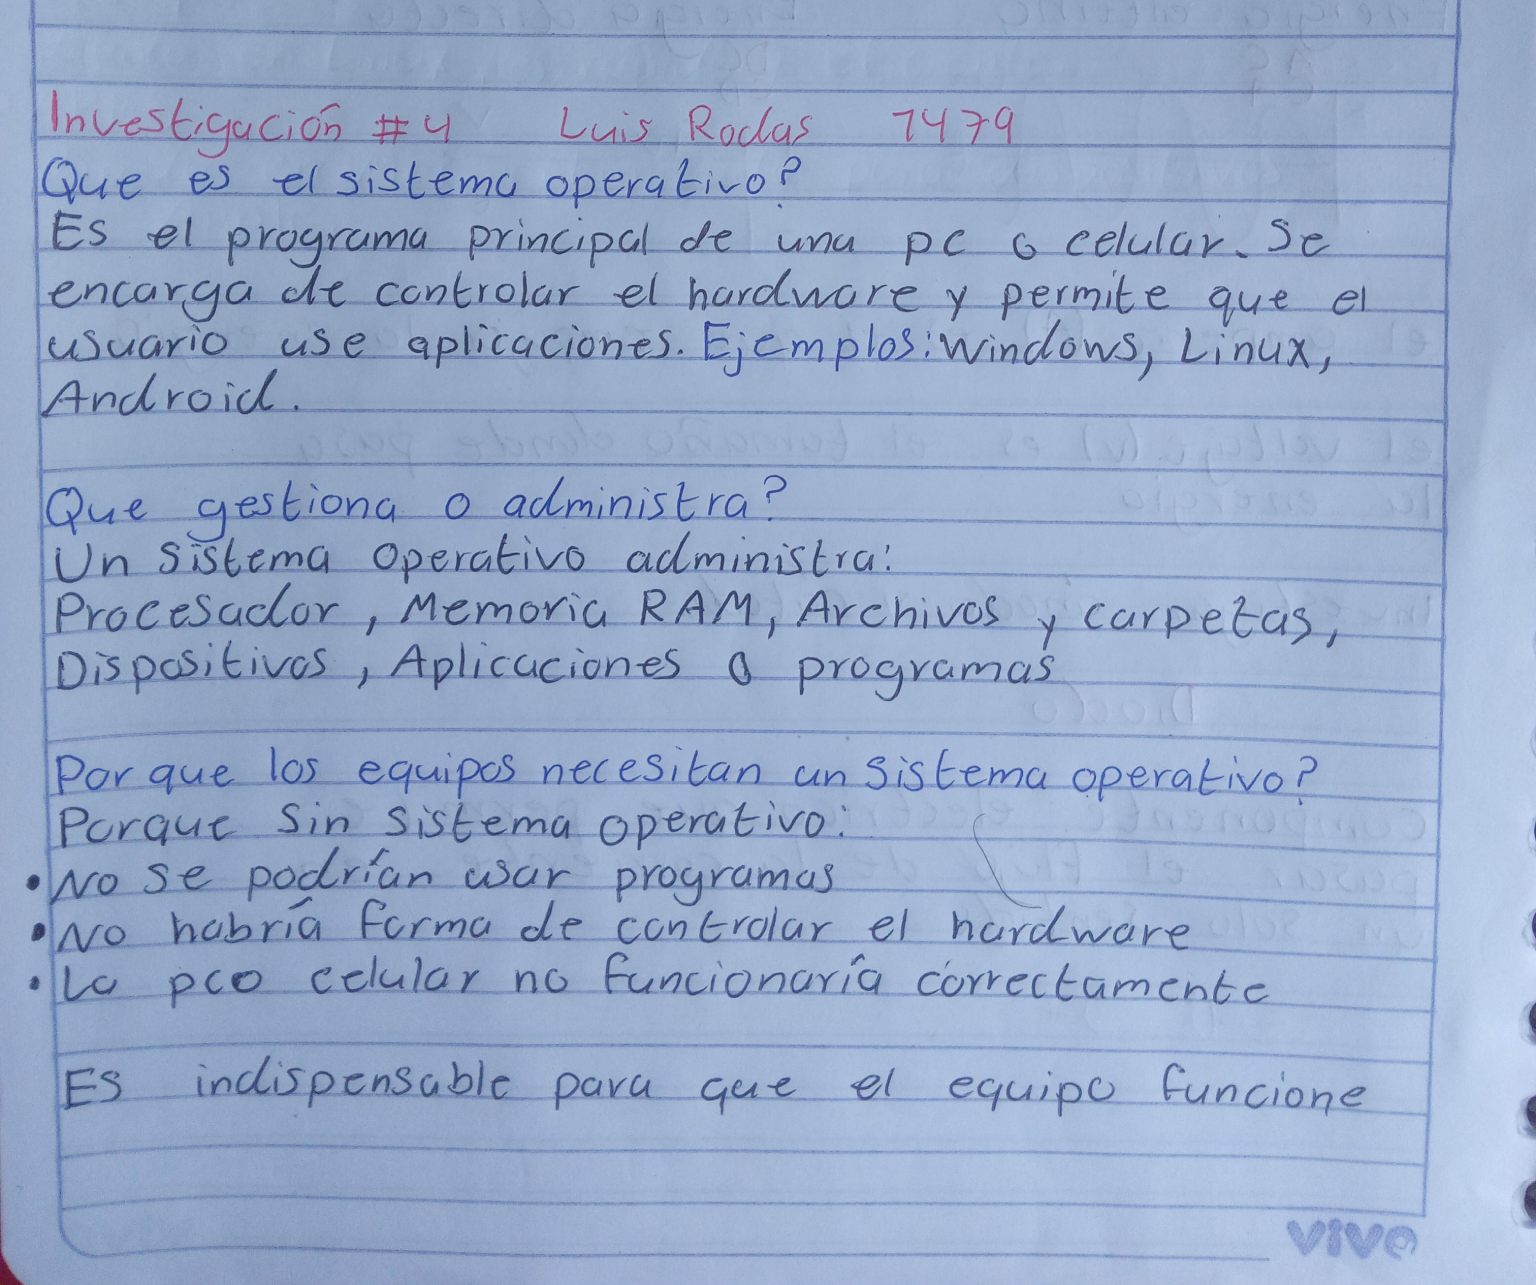 Investigación #4 Luis Rodas 7479
Que es el sistema operativo?
Es el programa principal de una pc o celular. Se
encarga de controlar el hardware y permite que el
usuario use aplicaciones. Ejemplos: Windows, Linux,
Android.
Que gestiona o administra?
Un sistema operativo administra:
Procesador, Memoria RAM, Archivos y carpetas,
Dispositivos, Aplicaciones o programas
Por que los equipos necesitan un sistema operativo?
Porque sin sistema operativo:
• No se podrían usar programas
• No habría forma de controlar el hardware
• La pc o celular no funcionaría correctamente
Es indispensable para que el equipo funcione
vivo